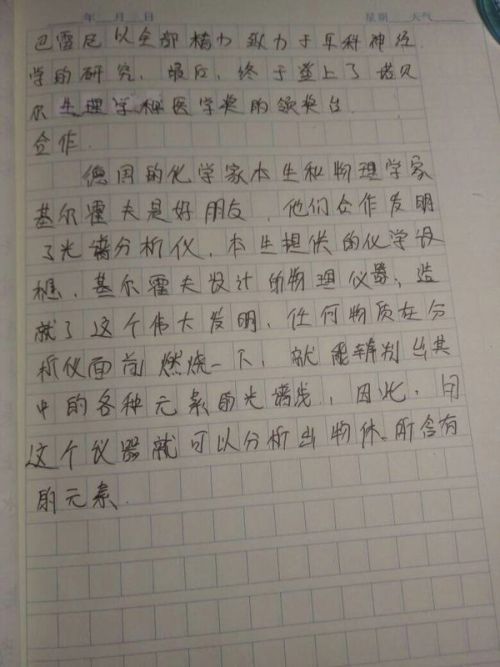 年 月 日 星期 天气
巴雷尼以全部精力致力于耳科神经
学的研究，最后，终于登上了诺贝
尔生理学和医学奖的领奖台.
合作.
德国的化学家本生和物理学家
基尔霍夫是好朋友，他们合作发明
了光谱分析仪，本生提供的化学设
想，基尔霍夫设计的物理仪器，造
就了这个伟大发明，任何物质在分
析仪面前燃烧一下，就能辨别出其
中的各种元素的光谱线，因此，用
这个仪器就可以分析出物体所含有
的元素.